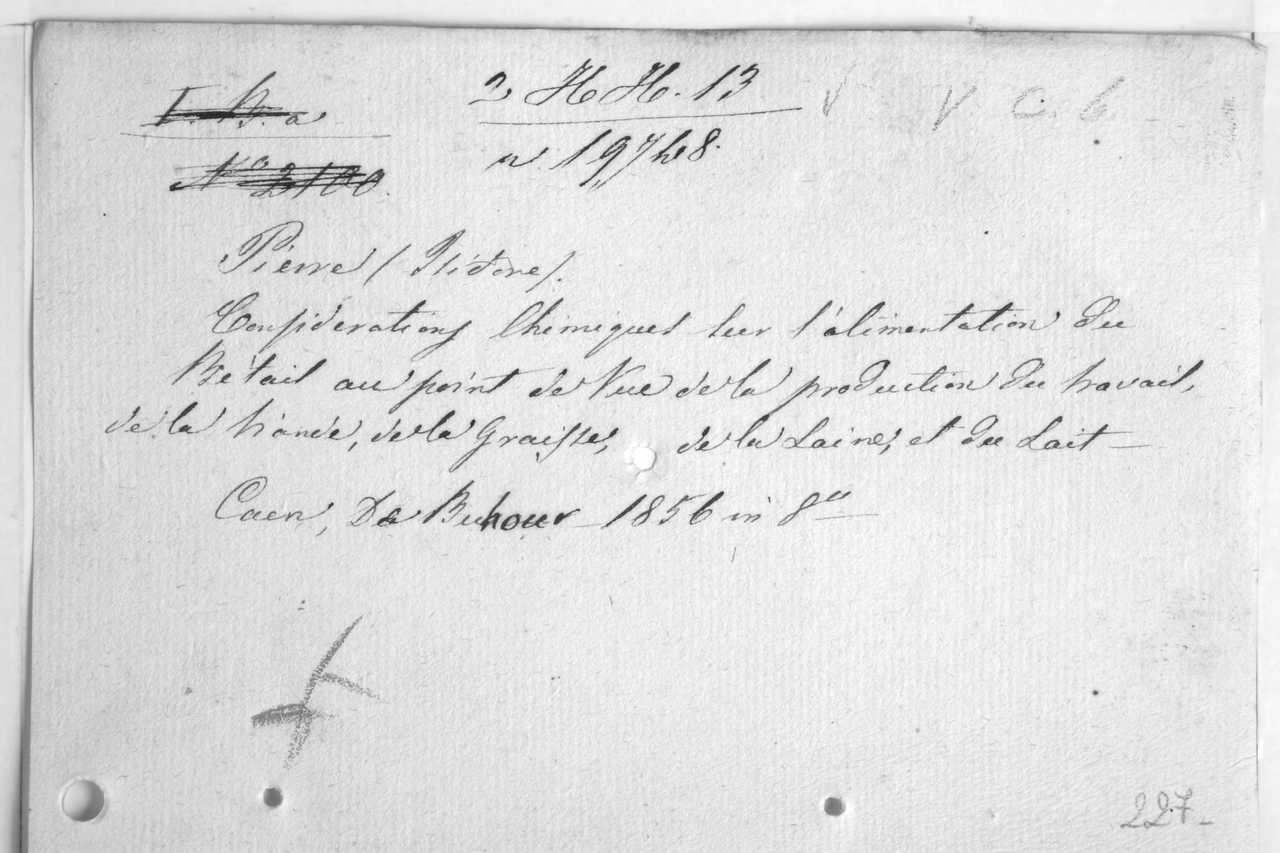 2 H H. 13 V V. C. 6.
n. 19748.
Pierre (Isidore).
Considerations Chimiques sur l'alimentation du
Bétail au point de Vue de la production du travail,
de la viande, de la Graisse, de la Laine, et du Lait —
Caen, De Buhour — 1856 in 8º —
227 —